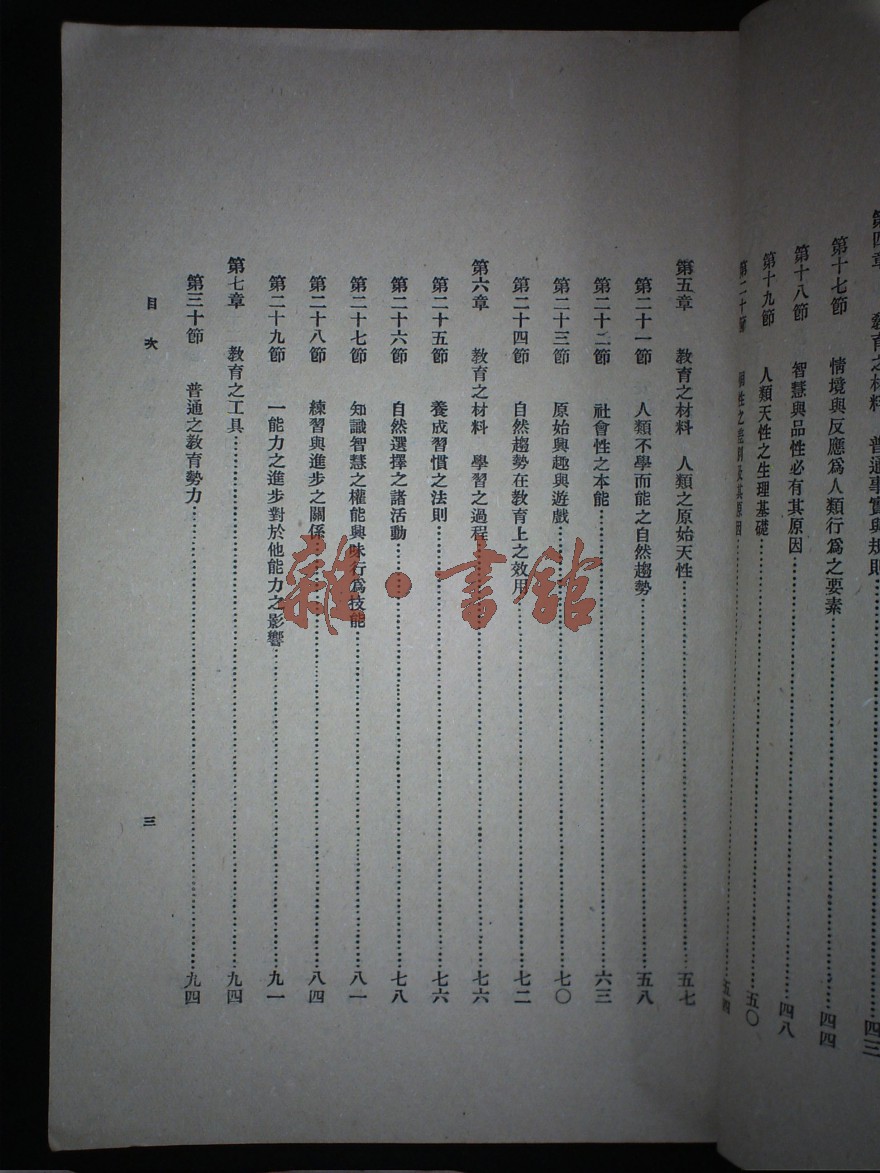 第四章 教育之材料 普通事實與規則……四三
第十七節 情境與反應爲人類行爲之要素……四四
第十八節 智慧與品性必有其原因……四八
第十九節 人類天性之生理基礎……五〇
第二十節 個性之差別及其原因……五四
第五章 教育之材料 人類之原始天性……五七
第二十一節 人類不學而能之自然趨勢……五八
第二十二節 社會性之本能……六三
第二十三節 原始興趣與遊戲……七〇
第二十四節 自然趨勢在教育上之效用……七二
第六章 教育之材料 學習之過程……七六
第二十五節 養成習慣之法則……七六
第二十六節 自然選擇之諸活動……七八
第二十七節 知識智慧之權能興味行爲技能……八一
第二十八節 練習與進步之關係……八四
第二十九節 一能力之進步對於他能力之影響……九一
第七章 教育之工具……九四
第三十節 普通之教育勢力……九四
目次
三
雜·書館